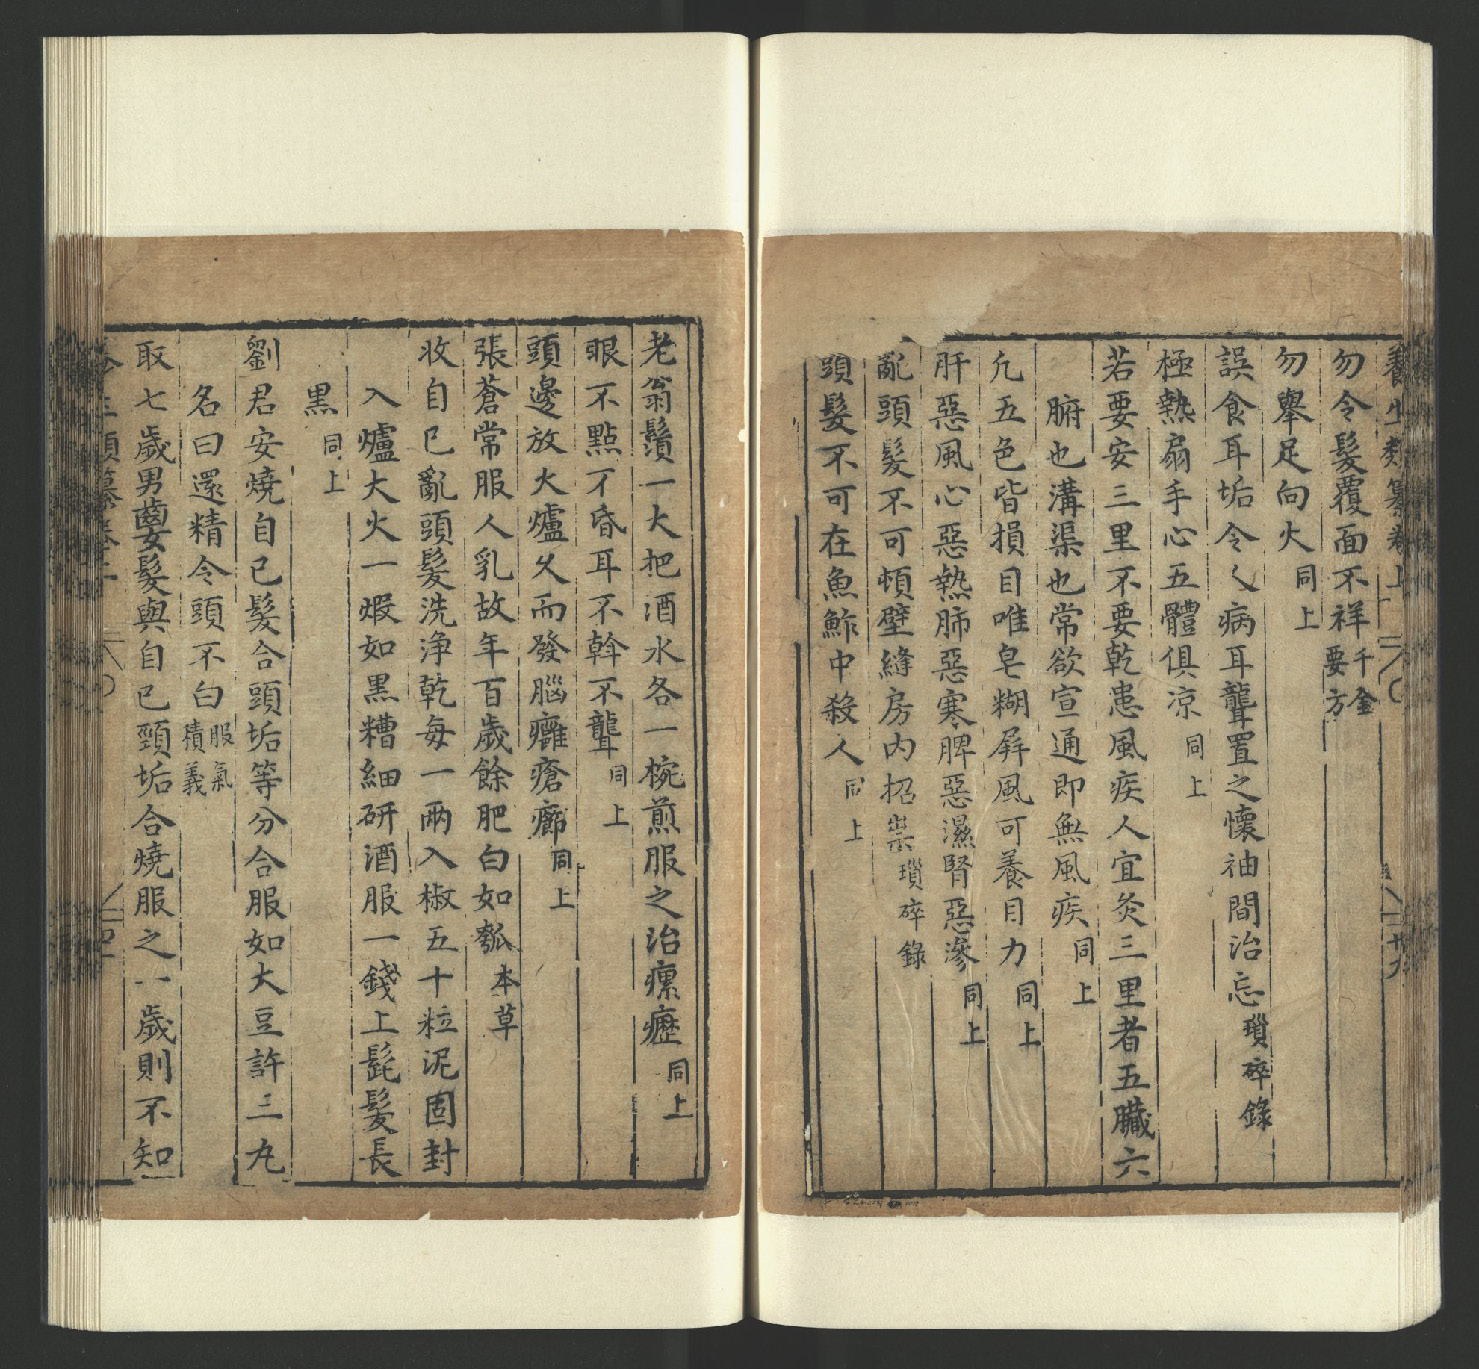 養生類纂卷上
勿令髮覆面不祥千金要方
勿舉足向火同上
誤食耳垢令人病耳聾置之懷袖間治忘瑣碎錄
極熱扇手心五體俱凉同上
若要安三里不要乾患風疾人宜灸三里者五臟六
腑也溝渠也常欲宣通即無風疾同上
凢五色皆損目唯皂糊屛風可養目力同上
肝惡風心惡熱肺惡寒脾惡濕腎惡滲同上
亂頭髮不可頓壁縫房内招祟瑣碎錄
頭髮不可在魚鮓中殺人同上
老翁鬚一大把酒水各一椀煎服之治瘰癧同上
眼不點不昏耳不斡不聾同上
頭邊放火爐久而發腦癰瘡癤同上
張蒼常服人乳故年百歲餘肥白如瓠本草
收自己亂頭髮洗淨乾每一兩入椒五十粒泥固封
入爐大火一煅如黒糟細研酒服一錢上髭髮長
黒同上
劉君安燒自己髮合頭垢等分合服如大豆許三丸
名曰還精令頭不白服氣積義
取七歲男齒髮與自己頸垢合燒服之一歲則不知